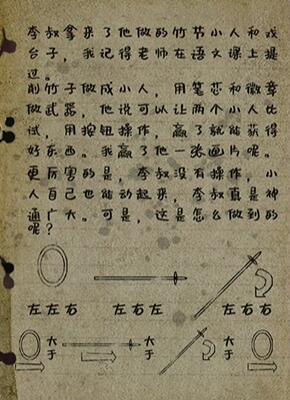 李叔拿来了他做的竹节小人和戏
台子，我记得老师在语文课上提
过。
削竹子做成小人，用笔芯和徽章
做武器，他说可以让两个小人比
试，用按钮操作，赢了就能获得
好东西。我赢了他一张画片呢。
更厉害的是，李叔没有操作，小
人自己也能动起来，李叔真是神
通广大。可是，这是怎么做到的
呢？
左左右 左右左 左右右
大于 大于